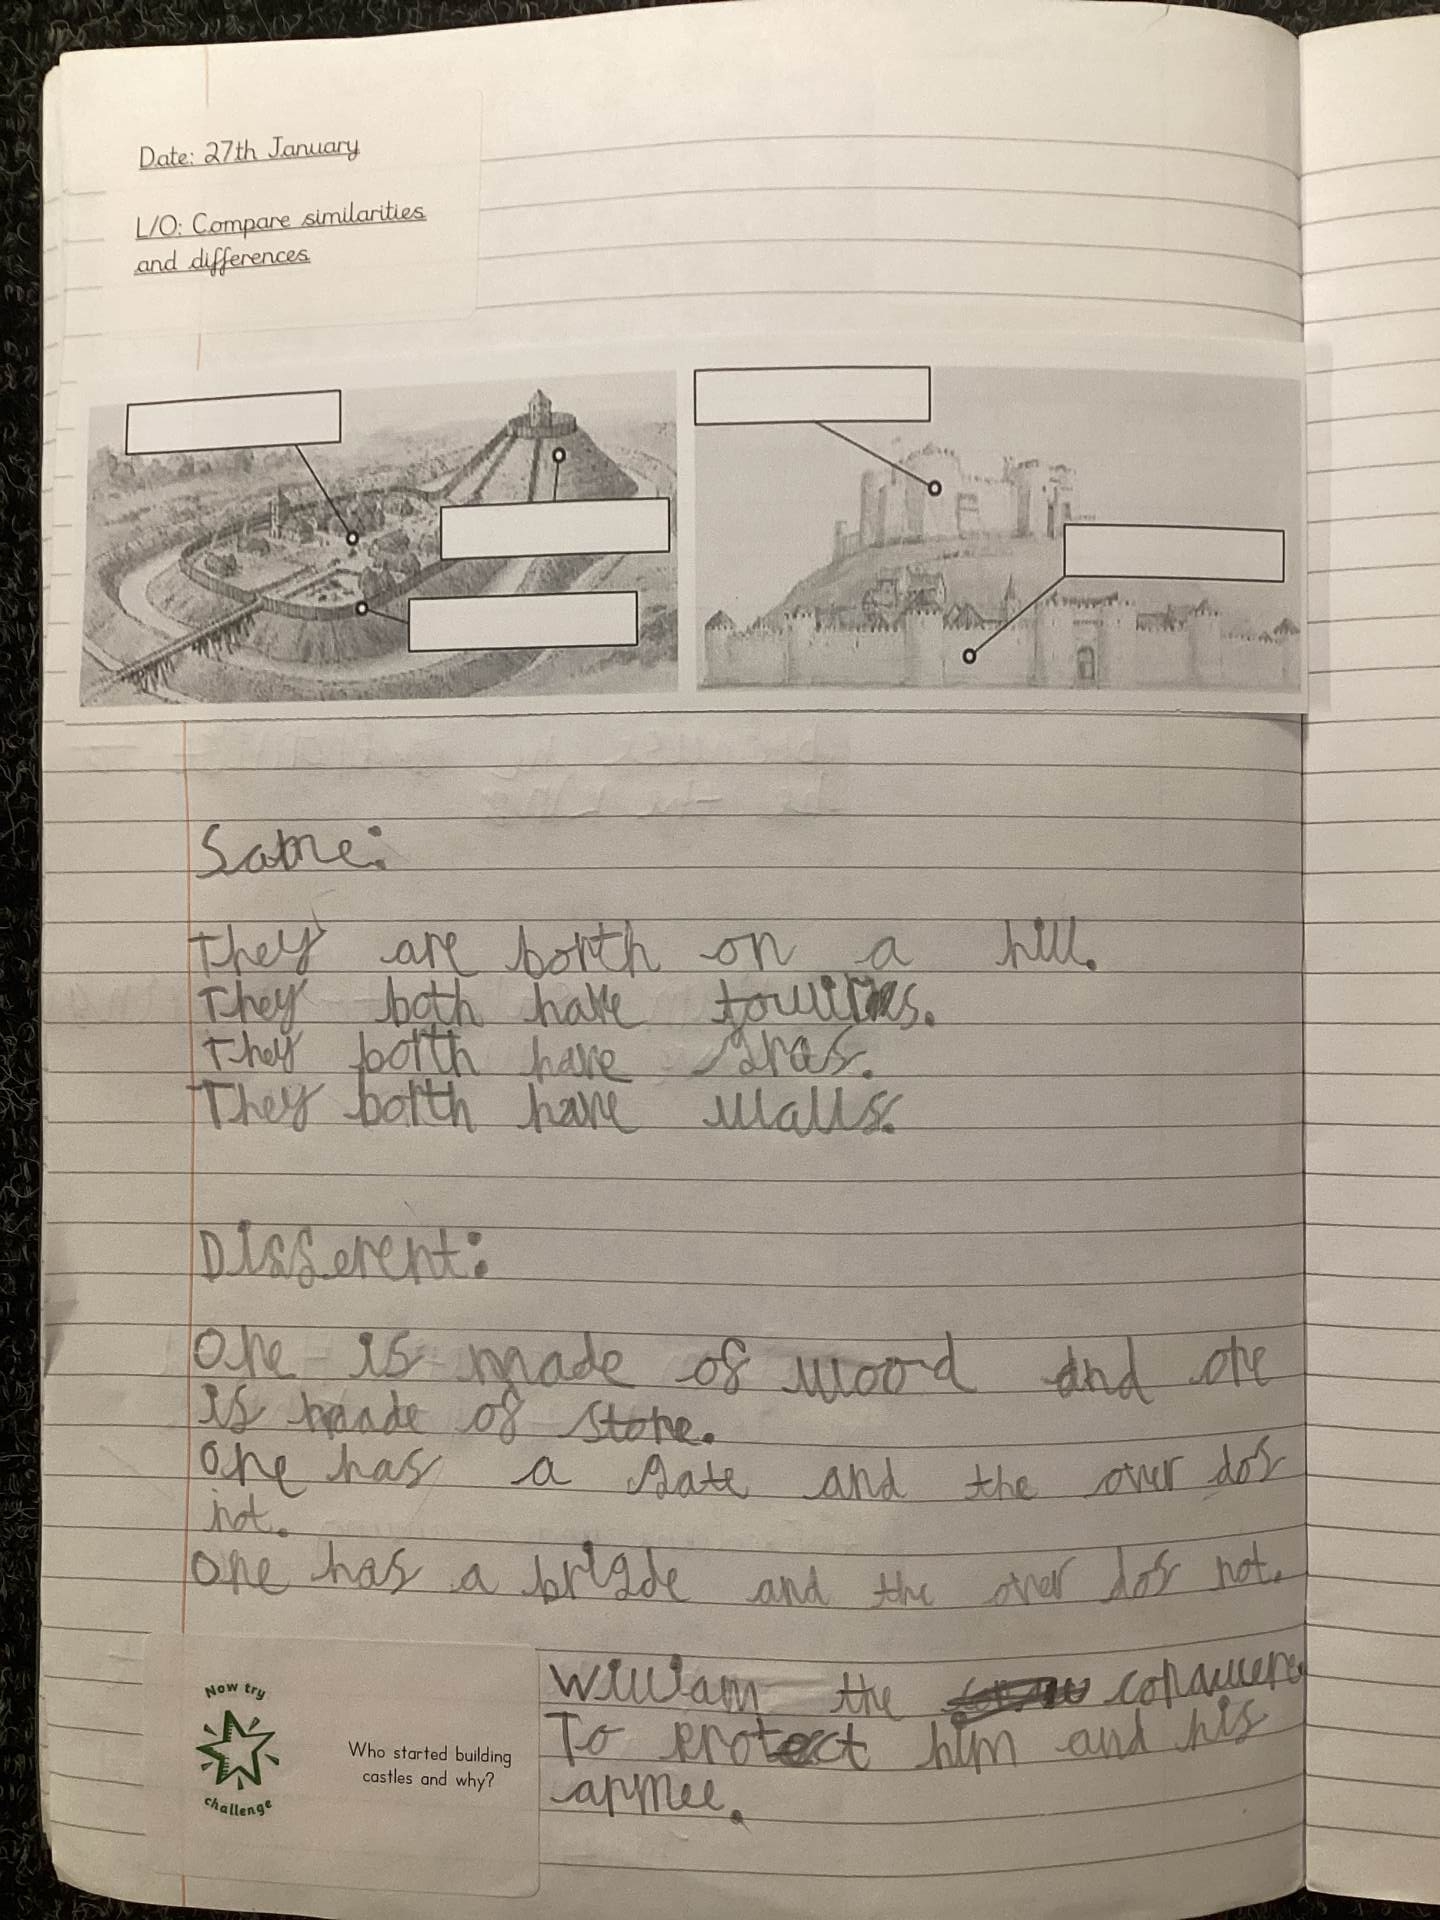 Date: 27th January
L/O: Compare similarities
and differences
Same:
They are borth on a hill.
They both have
They borth have gras.
They borth have walls.
Different:
One is made of wood and one
is made of stone.
one has a gate and the over dos
not.
one has a brigde and the over dos not.
Now try
challenge
Who started building
castles and why?
William the
To protect him and his
armee.